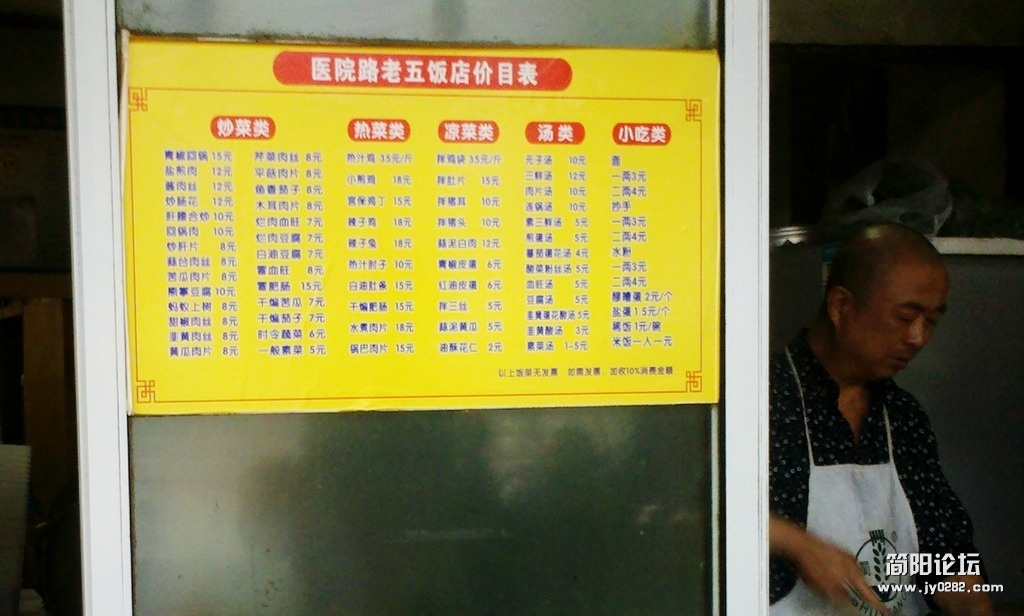 医院路老五饭店价目表
炒菜类
青椒回锅 15元
盐煎肉 12元
酱肉丝 12元
炒肠花 12元
肝腰合炒 10元
回锅肉 10元
炒肝片 8元
蒜台肉丝 8元
苦瓜肉片 8元
熊掌豆腐 10元
蚂蚁上树 8元
甜椒肉丝 8元
韭黄肉丝 8元
黄瓜肉片 8元
芹菜肉丝 8元
平菇肉片 8元
鱼香茄子 8元
木耳肉片 8元
烂肉血旺 7元
烂肉豆腐 7元
白油豆腐 7元
冒血旺 8元
冒肥肠 15元
干煸苦瓜 7元
干煸茄子 7元
时令蔬菜 6元
一般素菜 5元
热菜类
热汁鸡 35元/斤
小煎鸡 18元
宫保鸡丁 15元
辣子鸡 18元
辣子兔 18元
热汁肘子 10元
白油肚条 15元
干煸肥肠 15元
水煮肉片 18元
锅巴肉片 15元
凉菜类
拌鸡块 35元/斤
拌肚片 15元
拌猪耳 10元
拌猪头 10元
蒜泥白肉 12元
青椒皮蛋 6元
红油皮蛋 6元
拌三丝 5元
蒜泥黄瓜 5元
油酥花仁 2元
汤类
元子汤 10元
三鲜汤 12元
肉片汤 10元
连锅汤 10元
素三鲜汤 5元
煎蛋汤 5元
蕃茄蛋花汤 4元
酸菜粉丝汤 5元
血旺汤 5元
豆腐汤 5元
韭黄蛋花酸汤 5元
韭黄酸汤 3元
素菜汤 1-5元
小吃类
面
一两3元
二两4元
抄手
一两3元
二两4元
水粉
一两3元
二两4元
醪糟蛋 2元/个
盐蛋 1.5元/个
稀饭 1元/碗
米饭一人一元
以上饭菜无发票 如需发票，加收10%消费金额
简阳论坛
www.jy0282.com